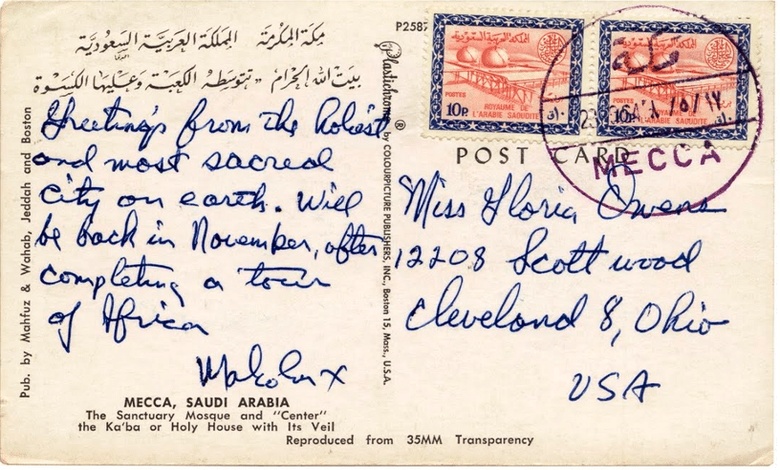 مكة المكرمة المملكة العربية السعودية
بيت الله الحرام - تتوسطه الكعبة وعليها الكسوة
Greetings from the holiest
and most sacred
city on earth. Will
be back in November, after
completing a tour
of Africa
Malcolm X
MECCA, SAUDI ARABIA
The Sanctuary Mosque and "Center"
the Ka'ba or Holy House with Its Veil
Reproduced from 35MM Transparency
Pub. by Mahfuz & Wahab, Jeddah and Boston
Plastichrome ® by COLOURPICTURE PUBLISHERS, INC., Boston 15, Mass., U.S.A.
P2587
المملكة العربية السعودية
POSTES
10P.
ROYAUME DE
L'ARABIE SAOUDITE
المملكة العربية السعودية
POSTES
10P.
ROYAUME DE
L'ARABIE SAOUDITE
مكة
MECCA
POST CARD
Miss Gloria Owens
12208 Scottwood
Cleveland 8, Ohio
USA